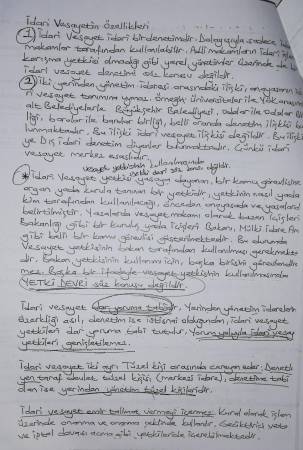 İdari Vesayetin Özellikleri
1 İdari Vesayet idari bir denetimdir. Dolayısıyla sadece
makamlar tarafından kullanılabilir. Adli makamların idari
karışma yetkisi olmadığı gibi yerel yönetimler üzerinde de
idari vesayet denetimi söz konusu değildir.
2 İki yerinden yönetim idaresi arasındaki ilişki, anayasanın
vesayet tanımına uymaz. Örneğin; Üniversiteler ile YÖK arasın
alt Belediyelerle Büyükşehir Belediyesi, Odalar ile Odalar
liği, barolar ile barolar birliği, belli oranda denetim
lunmaktadır. Bu ilişki idari vesayet ilişkisi değildir. Bu ilişki
ye Dış idari denetim diyenler bulunmaktadır. Çünkü idari
vesayet merkez esaslıdır.
vesayet yetkisinin kullanılmasında yetki devri söz konusu değildir.
* İdari Vesayet yetkisi yasaya dayanan, bir kamu görevlisine
organ yada kurula tanınan bir yetkidir, yetkinin nasıl yada
kim tarafından kullanılacağı, önceden anayasada ve yasalarda
belirtilmiştir. Yasalarda vesayet makamı olarak bazen İçişleri
Bakanlığı gibi bir kuruluş yada İçişleri Bakanı, Mülki İdare Am
gibi belli bir kamu görevlisi gösterilmektedir. Bu durumda
vesayet yetkisinin bakan tarafından kullanılması gerekmekte
dir. Bakan yetkisinin kullanımı için, başka birisini görevlendire
mez. Başka bir ifadeyle vesayet yetkisinin kullanılmasında
YETKİ DEVRİ söz konusu değildir.
İdari vesayet dar yoruma tabidir. Yerinden yönetim idarelerin
özerkliği asıl, denetim ise istisnai olduğundan, idari vesayet
yetkileri dar yoruma tabi tutulur. Yorum yoluyla idari vesayet
yetkileri genişletilemez.
İdari vesayet iki ayrı Tüzel kişi arasında cereyan eder: Denetle
yen taraf devlet tüzel kişisi (merkezi idare), denetime tabi
olan ise yerinden yönetim tüzel kişileridir.
İdari vesayet emir talimat vermeyi içermez. Kural olarak işlem
üzerinde onama ve onamama şeklinde kullanılır. Geciktirici veto
ve iptal davası açma gibi yetkilerde içerebilmektedir.